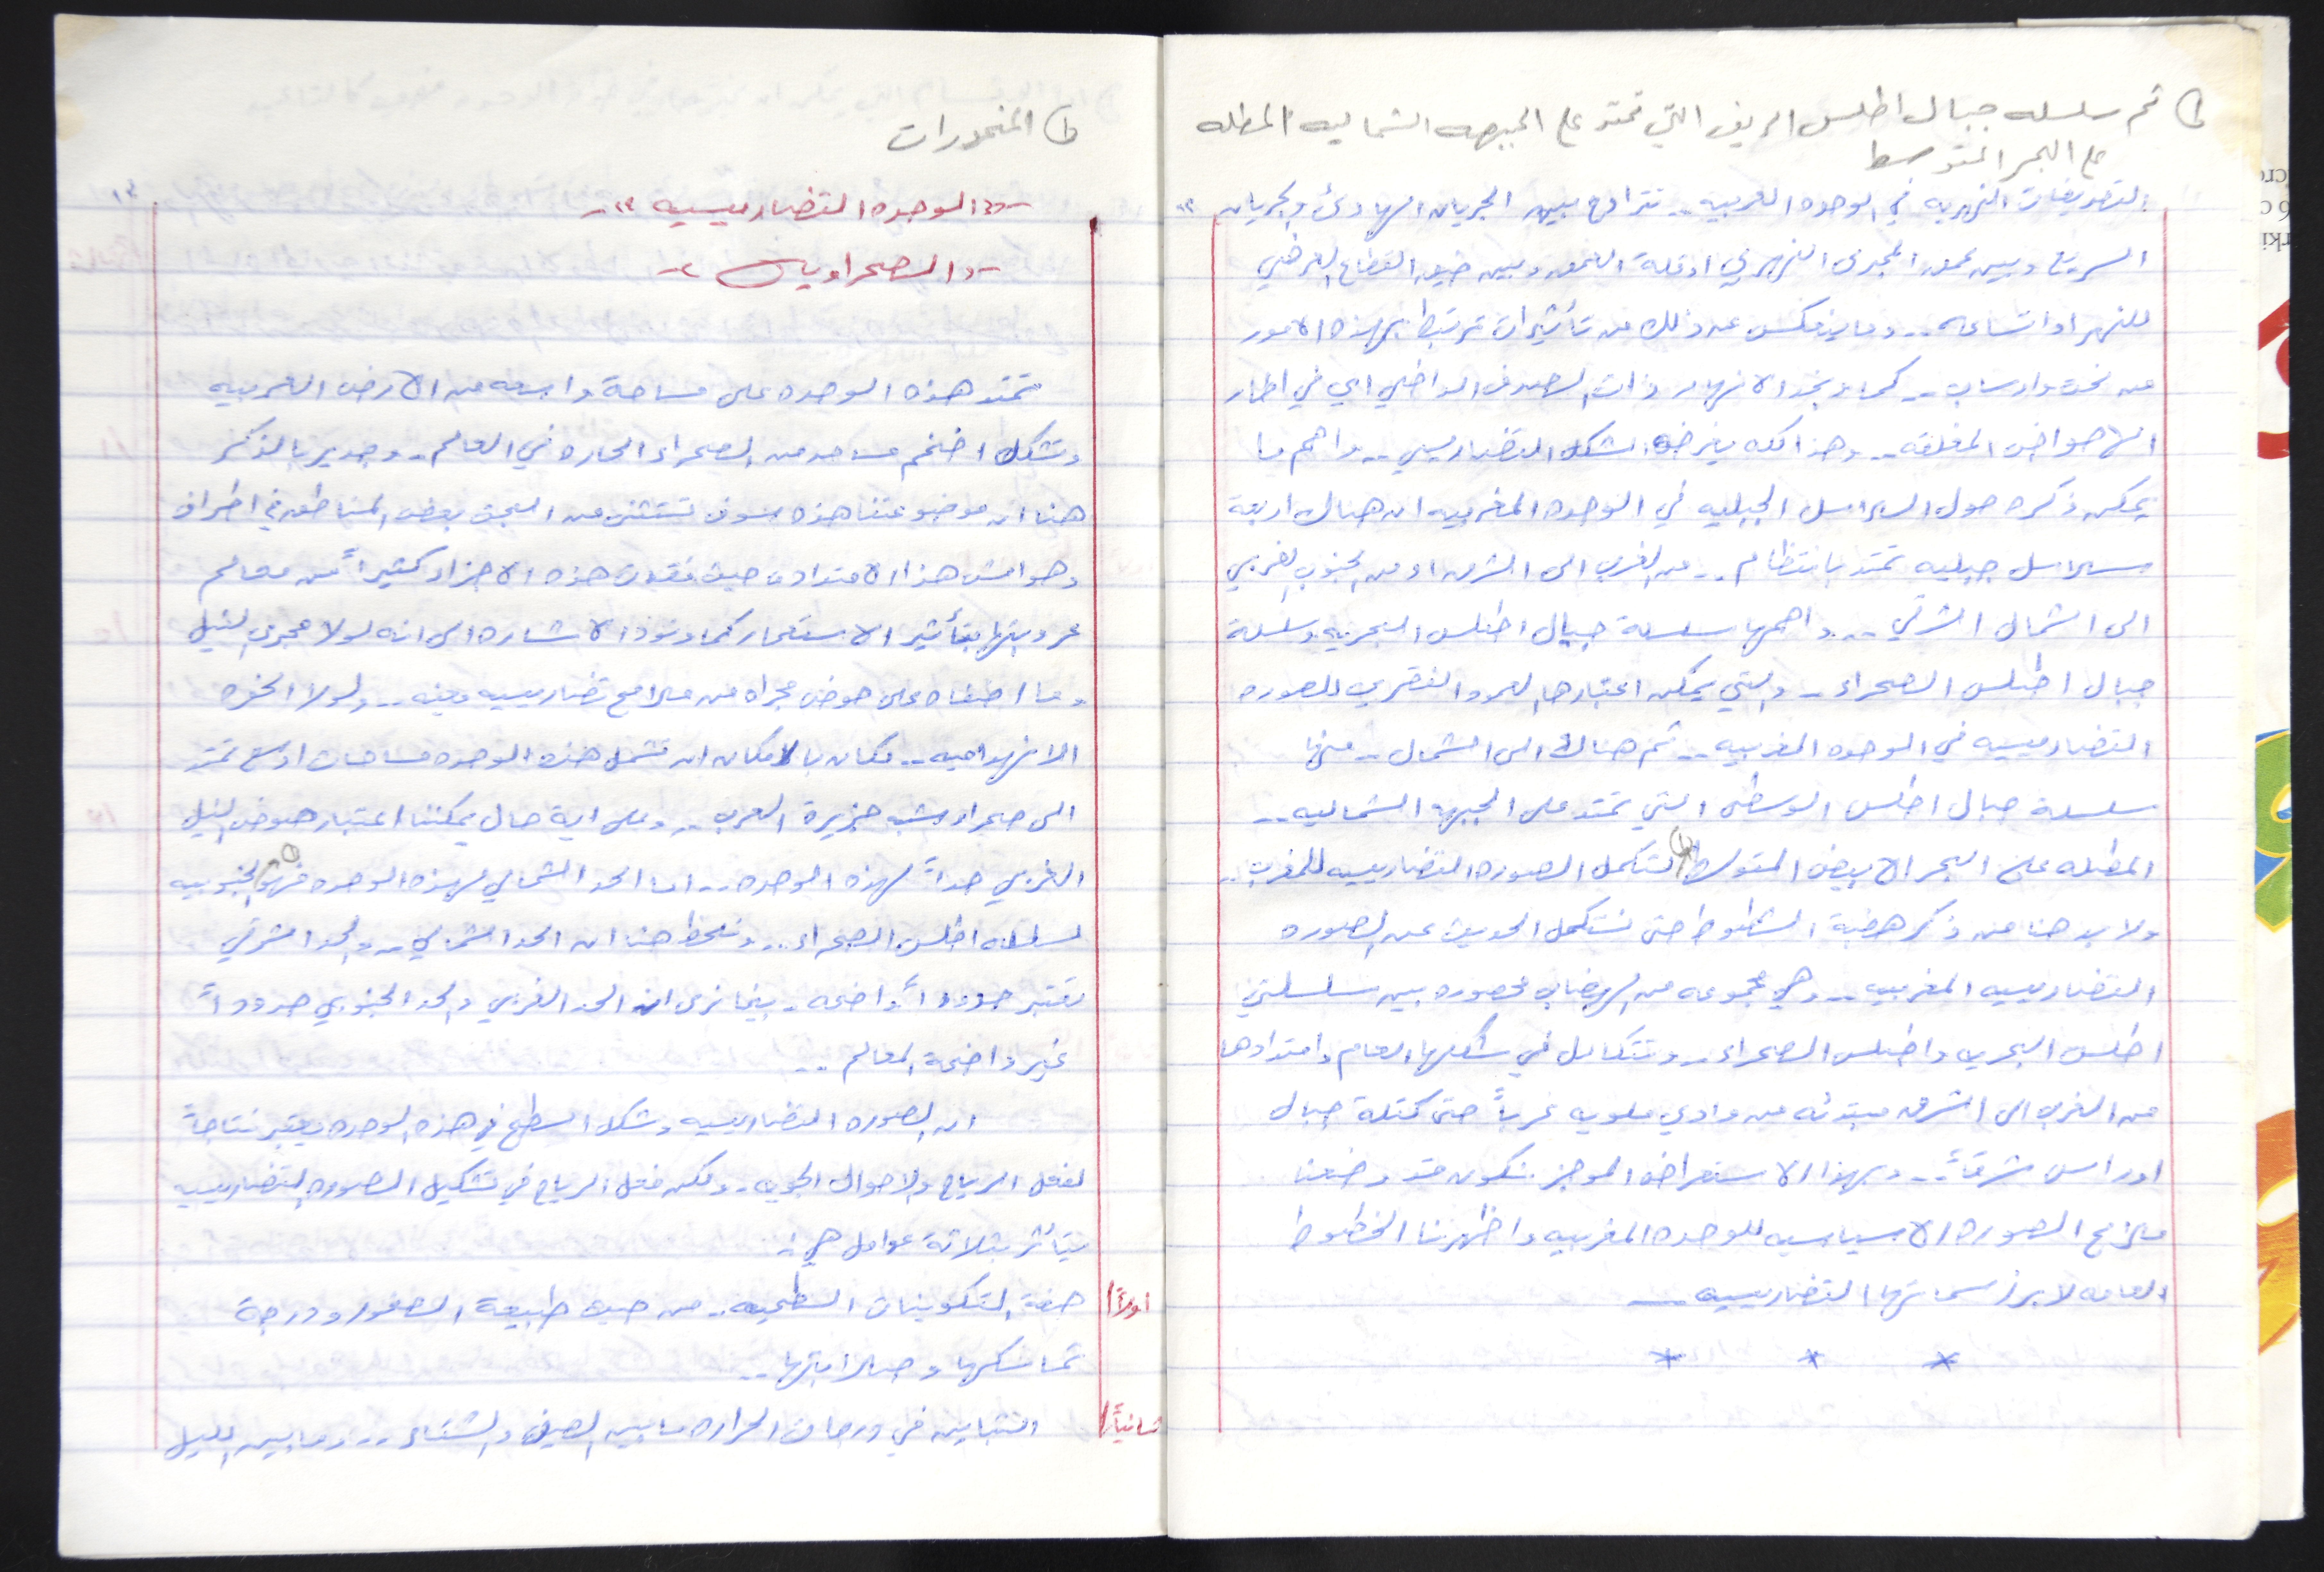 ١) ثم سلسله جبال اطلس الريف التي تمتد على الجبهه الشماليه المطله
على البحر المتوسط
التصريفات النهريه في الوحده العربيه .. تتراوح بين الجريان الهادئ والجريان
السريع وبين عمق المجرى النهري او قلة العمق وبين ضيق القطاع العرضي
للنهر او اتساعه .. وما ينعكس عن ذلك من تأثيرات ترتبط بهذه الامور
من نحت وارساب .. كما ونجد الانهار ذات الصرف الداخلي اي في اطار
الاحواض المغلقه .. وهذا كله يفرضه الشكل التضاريسي .. واهم ما
يمكن ذكره حول السلاسل الجبليه في الوحده المغربيه ان هناك اربعة
سلاسل جبليه تمتد بانتظام .. من الغرب الى الشرق او من الجنوب الغربي
الى الشمال الشرقي .. واهمها سلسلة جبال اطلس البحريه وسلسلة
جبال اطلس الصحراء .. والتي يمكن اعتبارها العمود الفقري للصوره
التضاريسيه في الوحده المغربيه .. ثم هناك الى الشمال .. منها
سلسلة جبال اطلس الوسطى التي تمتد على الجبهه الشماليه ..
المطله على البحر الابيض المتوسط (١) لتكمل الصوره التضاريسيه للمغرب ..
ولا بد هنا من ذكر هضبة الشطوط حتى نستكمل الحديث عن الصوره
التضاريسيه المغربيه .. وهي مجموعه من الهضاب محصوره بين سلسلتي
اطلس البحري واطلس الصحراء .. وتتكامل في شكلها العام وامتدادها
من الغرب الى الشرق مبتدئه من وادي ملويه غرباً حتى كتلة جبال
اوراس شرقاً .. وبهذا الاستعراض الموجز نكون قد وضعنا
ملامح الصوره الاساسيه للوحده المغربيه واظهرنا الخطوط
العامه لابرز سماتها التضاريسيه ــ
* * *
١) المنحدرات
-" الوحده التضاريسيه "-
- والصحراويه -
تمتد هذه الوحده على مساحة واسعه من الارض العربيه
وتشكل اضخم مساحه من الصحراء الحاره في العالم .. وجدير بالذكر
هنا ان موضوعتنا هذه سوف تستثني من البحث بعض المناطق في اطراف
وهوامش هذا الامتداد حيث فقدت هذه الاجزاء كثيراً من معالم
عروبتها بتأثير الاستعمار كما ونود الاشاره الى انه لولا مجرى النيل
وما اضفاه على حوض مجراه من ملامح تضاريسيه معينه .. ولولا الحفره
الانهداميه .. لكان بالامكان ان تشمل هذه الوحده مساحات اوسع تمتد
الى صحراء شبه جزيرة العرب .. وعلى اية حال يمكننا اعتبار حوض النيل
الغربي حداً لهذه الوحده .. اما الحد الشمالي لهذه الوحده فهو (١) الجنوبيه
لسلسله اطلس الصحراء .. ونلحظ هنا ان الحد الشمالي .. والحد الشرقي
تعتبر حدوداً واضحه .. بينما نرى ان الحد الغربي والحد الجنوبي حدوداً
غير واضحة المعالم ..
ان الصوره التضاريسيه وشكل السطح في هذه الوحده يعتبر نتاجاً
لفعل الرياح والاحوال الجويه .. ولكن فعل الرياح في تشكيل الصوره التضاريسيه
يتأثر بثلاثة عوامل هي :
اولاً/ صفة التكوينات السطحيه .. من حيث طبيعة الصخور ودرجة
تماسكها وصلابتها ..
ثانياً/ التباين في درجات الحراره ما بين الصيف والشتاء .. وما بين الليل